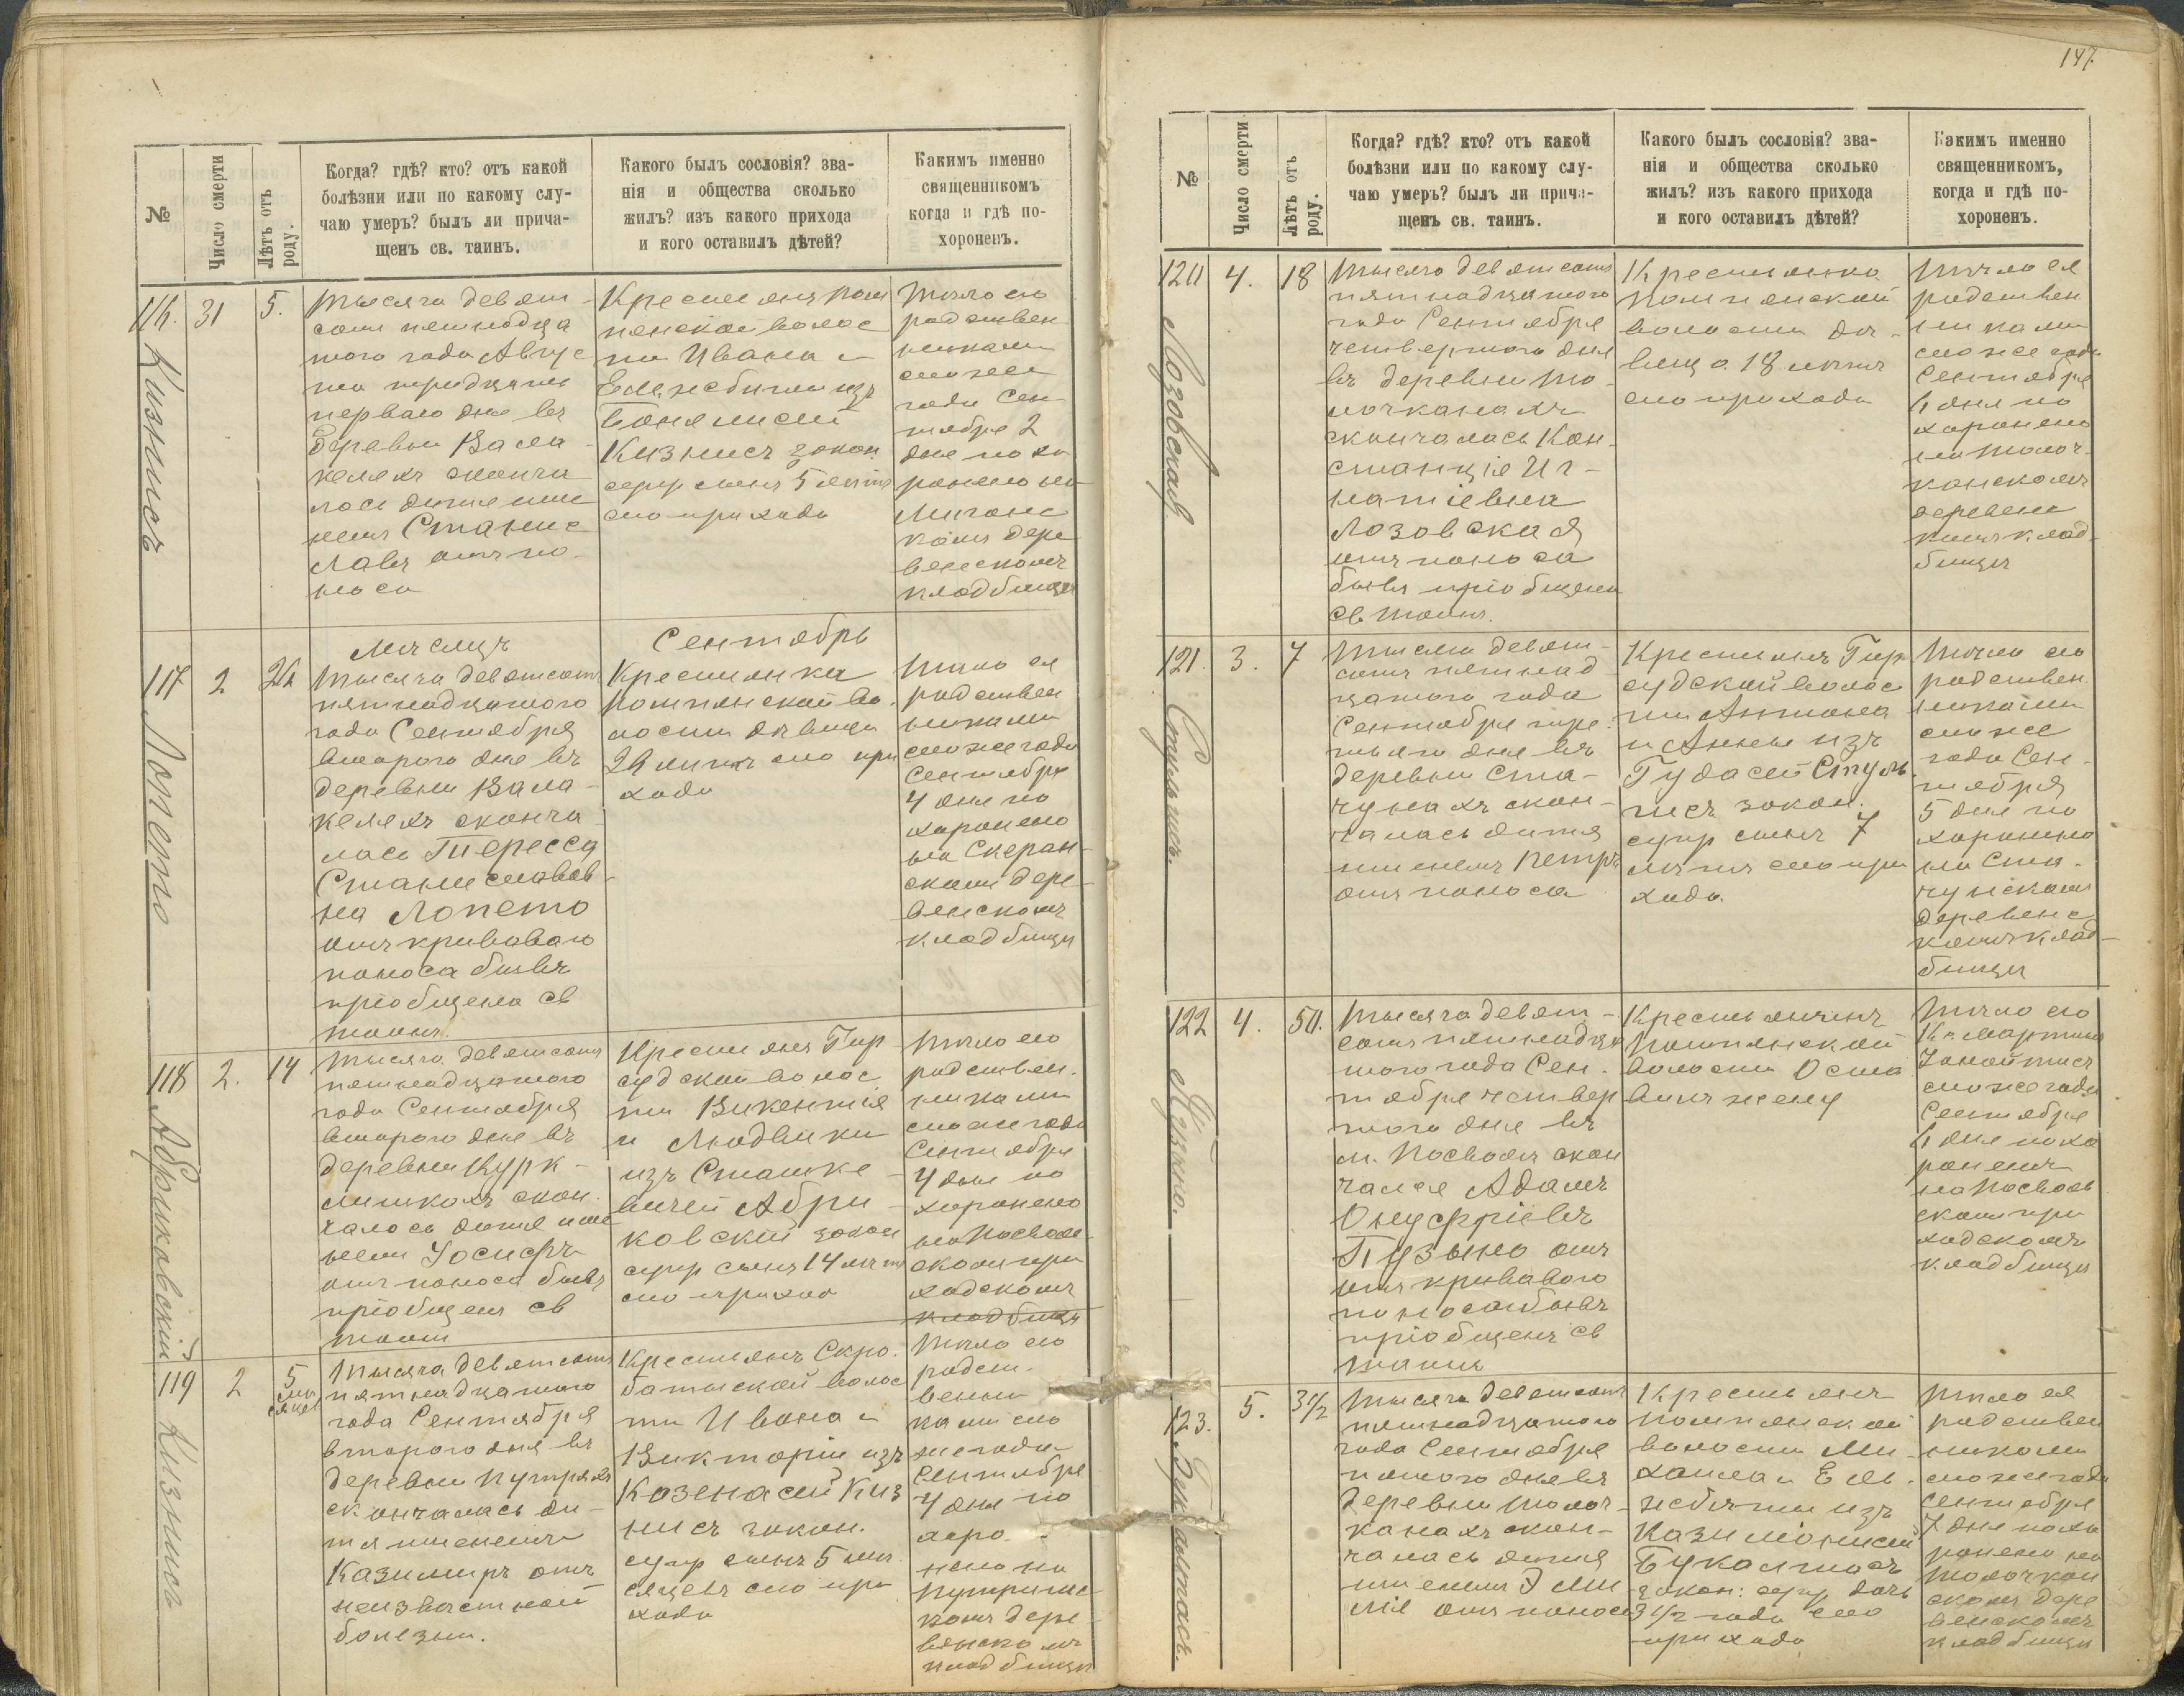 147.
№
Число смерти
Лѣтъ отъ
роду.
Когда? гдѣ? кто? отъ какой
болѣзни или по какому слу-
чаю умеръ? былъ ли прича-
щенъ св. таинъ.
Какого былъ сословія? зва-
нія и общества сколько
жилъ? изъ какого прихода
и кого оставилъ дѣтей?
Какимъ именно
священникомъ
когда и гдѣ по-
хороненъ.
116.
Кизнисъ
31
5.
Тысяча девят-
сотъ пятнадца
того года Авгус
та тридцать
перваго дня въ
деревни Вала-
келяхъ сконча
лось дитя име
немъ Станис
лавъ отъ по-
носа
Крестьянъ Пом
пянской волос
ти Ивана и
Елжбиты изъ
Кизнисъ закон
супр сынъ 5 лѣтъ
сего прихода
Тѣло его
родствен
никами
сего же
года Сен
тября 2
дня похо
ронено на
комъ дере
венскомъ
кладбищѣ
Мѣсяцъ
Сентябрь
117
Лопето
2
Тысяча девятсотъ
пятнадцатого
года Сентября
второго дня въ
деревни Вала-
келяхъ сконча
лась Тересса
Станиславов-
на Лопето
отъ кроваваго
поноса бывъ
пріобщена св
таинъ.
Крестьянка
Помпянской во
лости дѣвица
лѣтъ сего при
хода
Тѣло ея
родствен
никами
сего же года
Сентября
4 дня по
хоронено
на Скеран-
скомъ дере-
венскомъ
кладбищѣ
118
Абриковскій
2.
14
Тысяча девятсотъ
пятнадцатого
года Сентября
второго дня въ
деревни Курк-
лишкахъ скон
чалось дитя име
немъ Іосифъ
отъ поноса бывъ
пріобщенъ св
таинъ
Крестьянъ Гир-
судской волос
ти Викентія
и Людвики
изъ Сташке-
вичей Абри-
ковскій закон
супр сынъ 14 лѣтъ
сего прихода
Тѣло его
родствен.
никами
сего же года
Сентября
4 дня по
хоронено
на Посволь-
скомъ при
ходскомъ
кладбищѣ
119
Кизнисъ
2
5
мѣ
сяцев
Тысяча девятсотъ
пятнадцатого
года Сентября
второго дня въ
деревни Путряхъ
скончалась ди-
тя именемъ
Казимиръ отъ
неизвѣстной
болезни.
Крестьянъ Скро-
батыской волос
ти Ивана и
Викторіи изъ
Козенасей Киз
нисъ закон.
супр сынъ 5 мѣ
сяцевъ сего при
хода
Тѣло его
родст-
венни
ками сего
же года
Сентября
4 дня по
хоро-
нено на
комъ дере
венскомъ
кладбищѣ
№
Число смерти
Лѣтъ отъ
роду.
Когда? гдѣ? кто? отъ какой
болѣзни или по какому слу-
чаю умеръ? былъ ли прича-
щенъ св. таинъ.
Какого былъ сословія? зва-
нія и общества сколько
жилъ? изъ какого прихода
и кого оставилъ дѣтей?
Какимъ именно
священникомъ,
когда и гдѣ по-
хороненъ.
120
Лозовская
4.
18
Тысяча девятсотъ
пятнадцатого
года Сентября
четвертого дня
въ деревни То-
лочканахъ
скончалась Кон-
станція Иг-
натіевна
Лозовская
отъ поноса
бывъ пріобщена
св таинъ.
Крестьянка
Помпянской
волости дѣ-
вица 18 лѣтъ
сего прихода
Тѣло ея
родствен
никами
сего же года
Сентября
6 дня по
хоронено
на Толоч-
канскомъ
деревенс
комъ клад-
бищѣ
121.
Стульписъ.
3.
7
Тысяча девят-
сотъ пятнад
цатого года
Сентября тре-
тьяго дня въ
деревни Ста-
чунахъ скон-
чалась дитя
именемъ Петръ
отъ поноса
Крестьянъ Гир
судской волос
ти Антона
и Анны изъ
Гудасей Стуль
писъ закон.
супр сынъ 7
лѣтъ сего при
хода.
Тѣло его
родствен
никами
сего же
года Сен-
тября
5 дня по
хоронено
на Ста-
чунскомъ
деревенс
комъ клад-
бищѣ
122
Пузыно.
4.
50.
Тысяча девят-
сотъ пятнадца
того года Сен-
тября четвер
того дня въ
м. Посволѣ скон
чался Адамъ
Онуфріевъ
Пузыно отъ
отъ кровавого
поноса бывъ
пріобщенъ св
таинъ
Крестьянинъ
Помпянской
волости Оста
вилъ жену
Тѣло его
Кс. Мартинъ
сего же года
Сентября
6 дня похо
роненъ
на Посволь
скомъ при
ходскомъ
кладбищѣ
123.
Букантасъ.
5.
3 1/2
Тысяча девятсотъ
пятнадцатого
года Сентября
пятого дня въ
деревни Толоч-
канахъ скон-
чалась дитя
именемъ Эми
лія отъ поноса
Крестьянъ
Помпянской
волости Ми-
хаила и Ель-
жбиты изъ
Букантасъ
закон: супр дочь
3 1/2 года сего
прихода
Тѣло ея
родствен
никами
сего же года
Сентября
7 дня похо
ронено на
Толочкан
скомъ дере
венскомъ
кладбищѣ